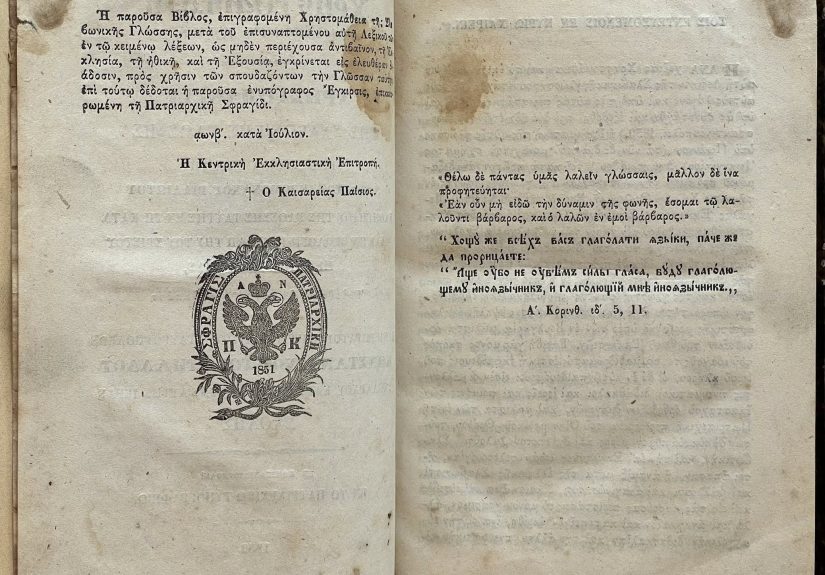 Ἡ παροῦσα Βίβλος, ἐπιγραφομένη Χρηστομάθεια τῆς Σλα-
βωνικῆς Γλώσσης, μετὰ τοῦ ἐπισυναπτομένου αὐτῇ Λεξικοῦ τῶν
ἐν τῷ κειμένῳ λέξεων, ὡς μηδὲν περιέχουσα ἀντιβαῖνον, τῇ Ἐκ-
κλησίᾳ, τῇ ἠθικῇ, καὶ τῇ Ἐξουσίᾳ, ἐγκρίνεται εἰς ἐλευθέραν ἔκ-
δοσιν, πρὸς χρῆσιν τῶν σπουδαζόντων τὴν Γλῶσσαν ταύτην
ἐπὶ τούτῳ δέδοται ἡ παροῦσα ἐνυπόγραφος Ἔγκρισις,
ρωμένη τῇ Πατριαρχικῇ Σφραγῖδι.
αωνβʹ. κατὰ Ἰούλιον.
Ἡ Κεντρικὴ Ἐκκλησιαστικὴ Ἐπιτροπή.
† Ὁ Καισαρείας Παΐσιος.
ΣΦΡΑΓΙΣ ΠΑΤΡΙΑΡΧΙΚΗ
Α Ν
Π Κ
1851
«Θέλω δὲ πάντας ὑμᾶς λαλεῖν γλώσσαις, μᾶλλον δὲ ἵνα
προφητεύητε·
«Ἐὰν οὖν μὴ εἰδῶ τὴν δύναμιν τῆς φωνῆς, ἔσομαι τῷ λα-
λοῦντι βάρβαρος, καὶ ὁ λαλῶν ἐν ἐμοὶ βάρβαρος.»
“ Хощу же всѣхъ васъ глаголати ѧзыки, паче же
да прорицаете:
“ Аще оубо не оувѣмъ силы гласа, буду глаголю-
щему иноѧзычникъ, и глаголющїй мнѣ иноѧзычникъ.,,
Αʹ. Κορινθ. ιδʹ. 5, 11.